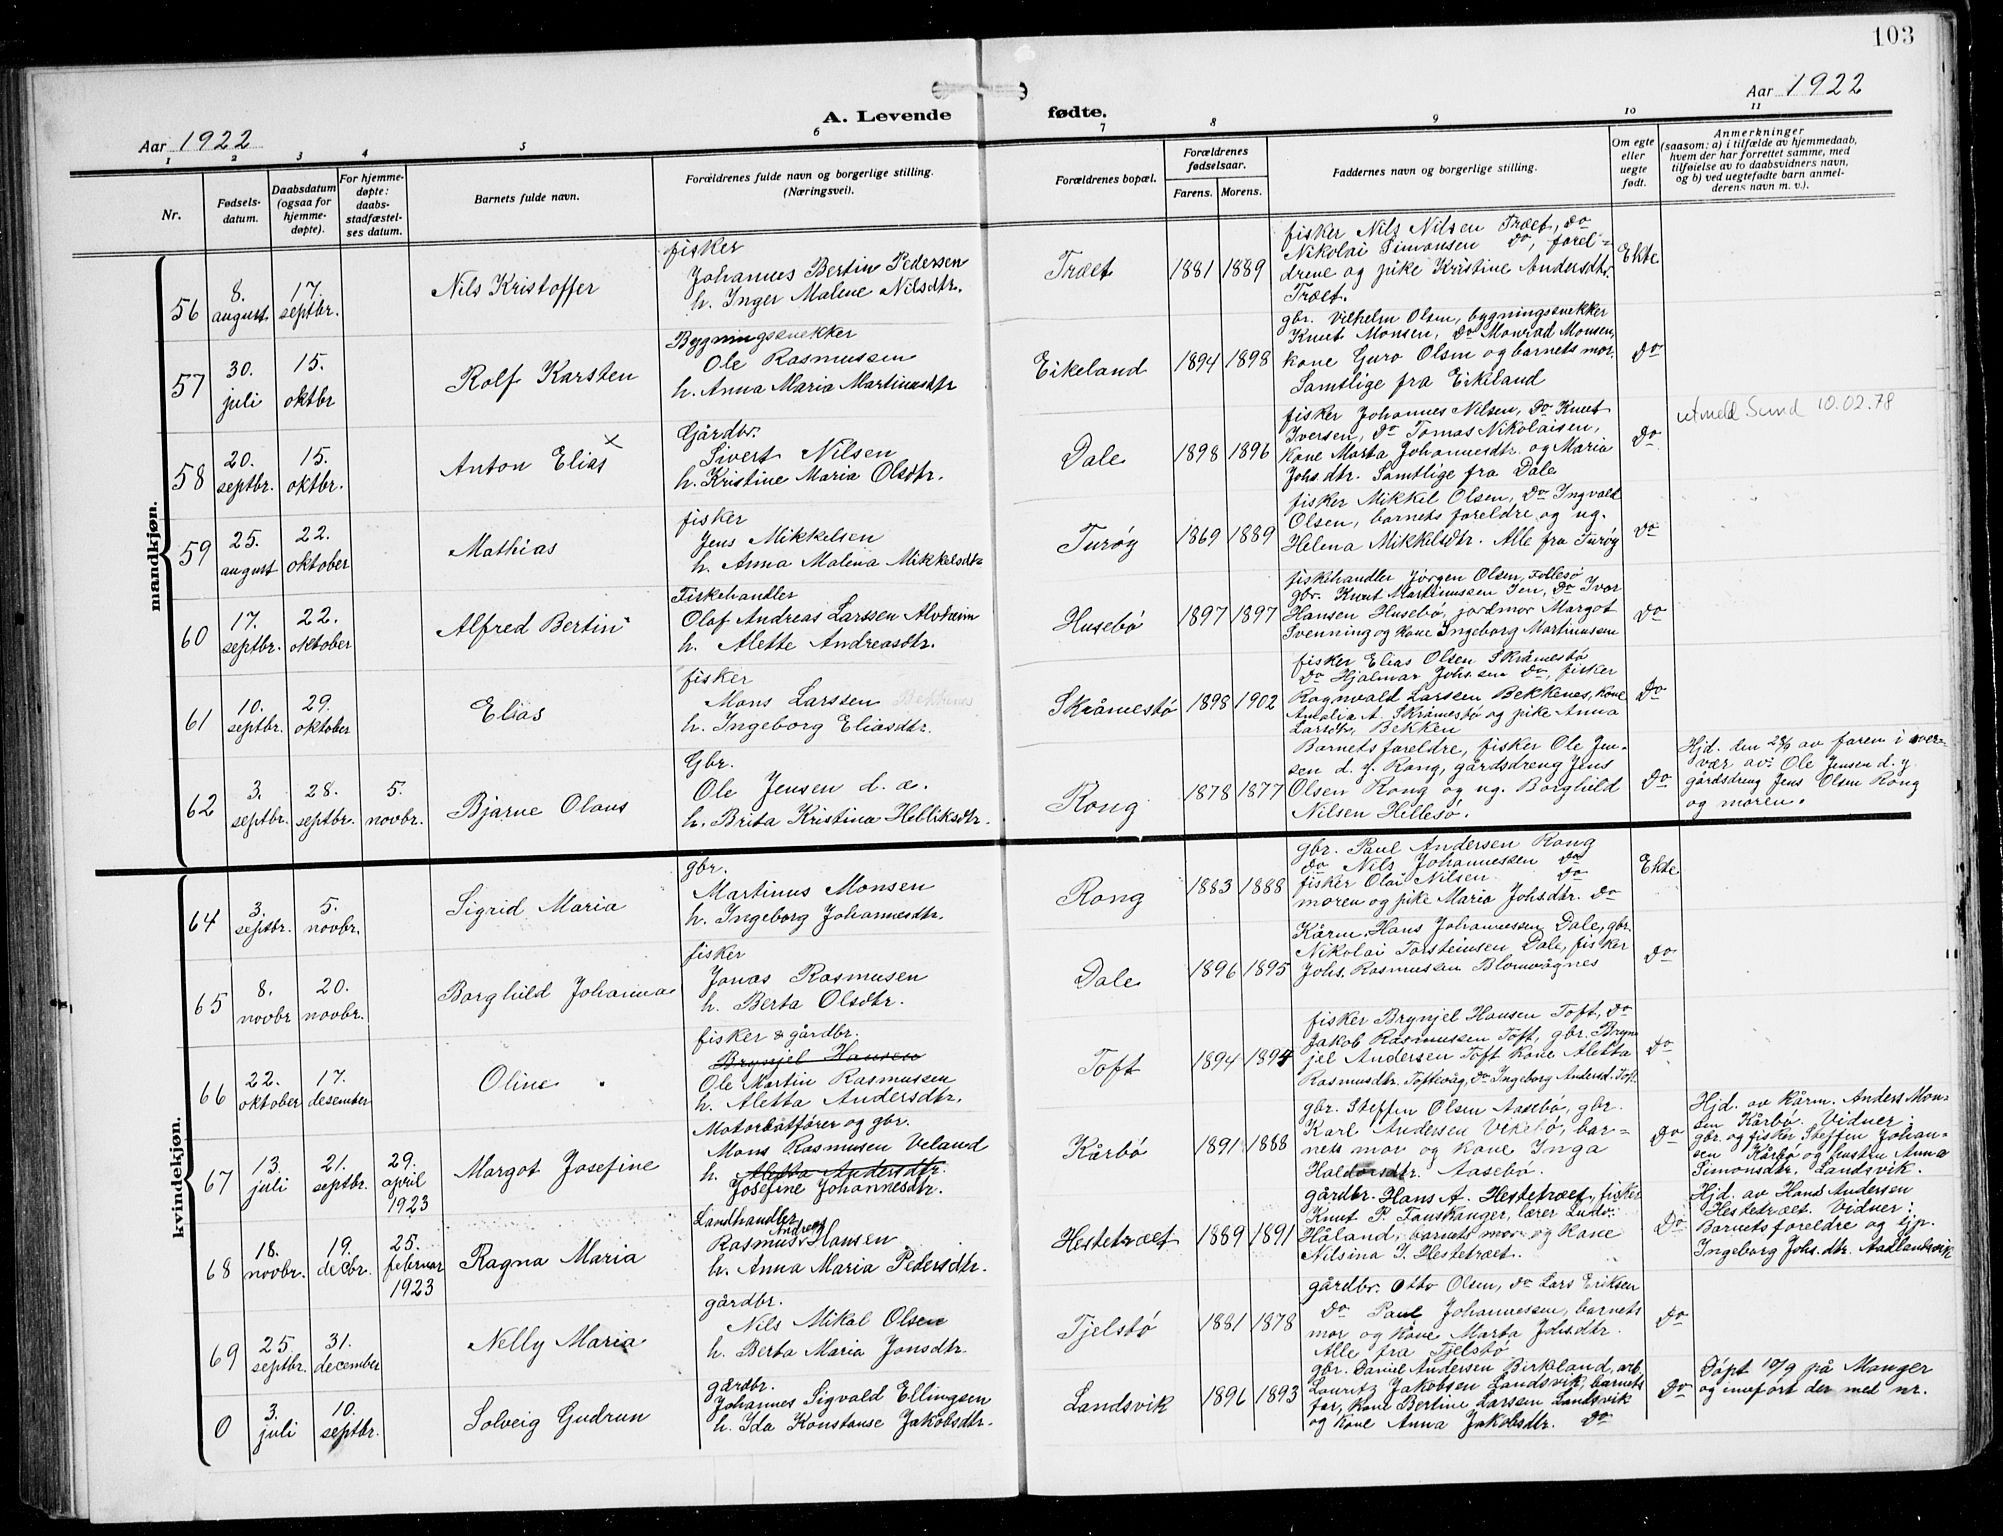 103
Aar 1922
A. Levende fødte.
Aar 1922
1 2 3 4 5 6 7 8 9 10 11
Nr.
Fødsels-
datum.
Daabsdatum
(ogsaa for
hjemme-
døpte).
For hjemme-
døpte:
daabs-
stadfæstel-
ses datum.
Barnets fulde navn.
Forældrenes fulde navn og borgerlige stilling.
(Næringsvei).
Forældrenes bopæl.
Forældrenes
fødselsaar.
Farens. Morens.
Faddernes navn og borgerlige stilling.
Om egte
eller
uegte
født.
Anmerkninger
(saasom: a) i tilfælde av hjemmedaab,
hvem der har forrettet samme, med
tilføielse av to daabsvidners navn,
og b) ved uegtefødte barn anmel-
derens navn m. v.).
mandkjøn.
56
8.
august
17.
septbr.
Nils Kristoffer
fisker
Johannes Bertin Pedersen
h. Inger Malene Nilsdtr.
Træet
1881 1889
fisker Nils Nilsen Træet, do
Nikolai Simonsen do, forel-
drene og pike Kristine Andersdtr.
Træet.
Ekte
57
30.
juli
15.
oktbr
Rolf Karsten
Bygningssnekker
Ole Rasmussen
h. Anna Maria Martinusdtr
Eikeland
1894 1898
gbr. Vilhelm Olsen, bygningssnekker
Knut Monsen, do Monrad Monsen,
kone Guro Olsen og barnets mor.
Samtlige fra Eikeland
do
58
20.
septbr.
15.
oktbr.
Anton Elias x
Gårdbr.
Sivert Nilsen
h. Kristine Maria Olsdtr.
Dale
1898 1896
fisker Johannes Nilsen, do Knut
Iversen, do Tomas Nikolaisen,
kone Marta Johannesdtr. og Maria
Johs.dtr. Samtlige fra Dale
do
utmeld Sund 10.02.78
59
25.
august
22.
oktober
Mathias
fisker
Jens Mikkelsen
h. Anna Malena Mikkelsdtr
Turøy
1869 1889
fisker Mikkel Olsen, do Ingvald
Olsen, barnets foreldre og ug.
Helena Mikkelsdtr. Alle fra Turøy
do
60
17.
septbr.
22.
oktober
Alfred Bertin
Fiskehandler
Olaf Andreas Larssen Alvheim
h. Alette Andreasdtr.
Husebö
1897 1897
fiskehandler Jörgen Olsen, Follesö
gbr. Knut Martinussen Jen, do Ivar
Hansen Husebö, jordmor Margot
Svenning og kone Ingeborg Martinussen
do
61
10.
septbr.
29.
oktober
Elias
fisker
Mons Larssen Bekkenes
h. Ingeborg Eliasdtr.
Skråmestö
1898 1902
fisker Elias Olsen Skråmestö
do Hjalmar Johs.sen do, fisker
Ragnvald Larssen Bekkenes, kone
Amalia A. Skråmestö og pike Anna
Larsdtr. Bekken
do
62
3.
septbr.
28.
septbr.
5.
novbr.
Bjarne Olaus
Gbr.
Ole Jensen d. æ.
h. Brita Kristina Helliksdtr.
Rong
1878 1877
Barnets foreldre, fisker Ole Jen-
sen d. y. Rong, gårdsdreng Jens
Olsen Rong og ug. Borghild
Nilsen Hellesö.
do
Hjd. den 28/9 av faren i nær-
vær av: Ole Jensen d. y.
gårdsdreng Jens Olsen Rong
og moren.
kvindekjøn.
64
3.
septbr.
5.
novbr.
Sigrid Maria
gbr.
Martinus Monsen
h. Ingeborg Johannesdtr.
Rong
1883 1888
gbr. Paul Andersen Rong
do Nils Johannessen do
fisker Olai Nilsen do
moren og pike Maria Johsdtr. do
Ekte
65
8.
novbr
20.
novbr.
Borghild Johanna
fisker
Jonas Rasmusen
h. Berta Olsdtr.
Dale
1896 1895
Kårm. Hans Johannessen Dale, gbr.
Nikolai Torsteinsen Dale, fisker
Johs. Rasmusen Blomvågnes
do
66
22.
oktober
17.
desember
Oline
fisker & gårdbr.
Brynjel Hansen
Ole Martin Rasmussen
h. Aletta Andersdtr.
Toft
1894 1894
fisker Brynjel Hansen Toft, do
Jakob Rasmussen Toft, gbr. Bryn-
jel Andersen Toft kone Aletta
Rasmusdtr. Toftevåg, do Ingeborg Andersd. Toft.
do
67
13.
juli
21.
septbr.
29.
april
1923
Margot Josefine
Motorbåtfører og gbr.
Mons Rasmusen Veland
h. Aletta Andersdtr.
Josefine Johannesdtr.
Kårbö
1891 1888
gbr. Steffen Olsen Aasebö, gbr.
Karl Andersen Vikebö, bar-
nets mor og kone Inga
Haldorsdtr. Aasebö.
do
Hjd. av kårm. Anders Mon-
sen Kårbö. Vidner:
gbr. og fisker Steffen Johan-
sen Kårbö og hustru Anna
Simonsdtr. Landsvik.
68
18.
novbr.
19.
decbr.
25.
februar
1923
Ragna Maria
Landhandler
Rasmus Andreas Hansen
h. Anna Maria Pedersdtr.
Hestetræet
1889 1891
gårdbr. Hans A. Hestetræet, fisker
Knut P. Fauskanger, lærer Ludv.
Håland, barnets mor og kone
Nilsina J. Hestetræet.
do
Hjd. av Hans Andersen
Hestetræet. Vidner:
Barnets foreldre og ejp.
Ingeborg Johs.dtr. Aadlandsvik
69
25.
septbr.
31.
december
Nelly Maria
gårdbr.
Nils Mikal Olsen
h. Berta Maria Jonsdtr.
Tjelstö
1881 1878
gårdbr. Otto Olsen, do Lars Eriksen
do Paul Johannessen, barnets
mor og kone Marta Johsdtr.
Alle fra Tjelstö
do
0
3.
juli
10.
septbr.
Solveig Gudrun
gårdbr.
Johannes Sigvald Ellingsen
h. Ida Konstanse Jakobsdtr.
Landsvik
1896 1893
gbr. Daniel Andersen Birkland, arb.
Lauritz Jakobsen Landsvik, barnets
far, kone Bertine Larssen Landsvik
og kone Anna Jakobsdtr. do
do
Döpt 10/9 på Manger
og innfört der med nr.